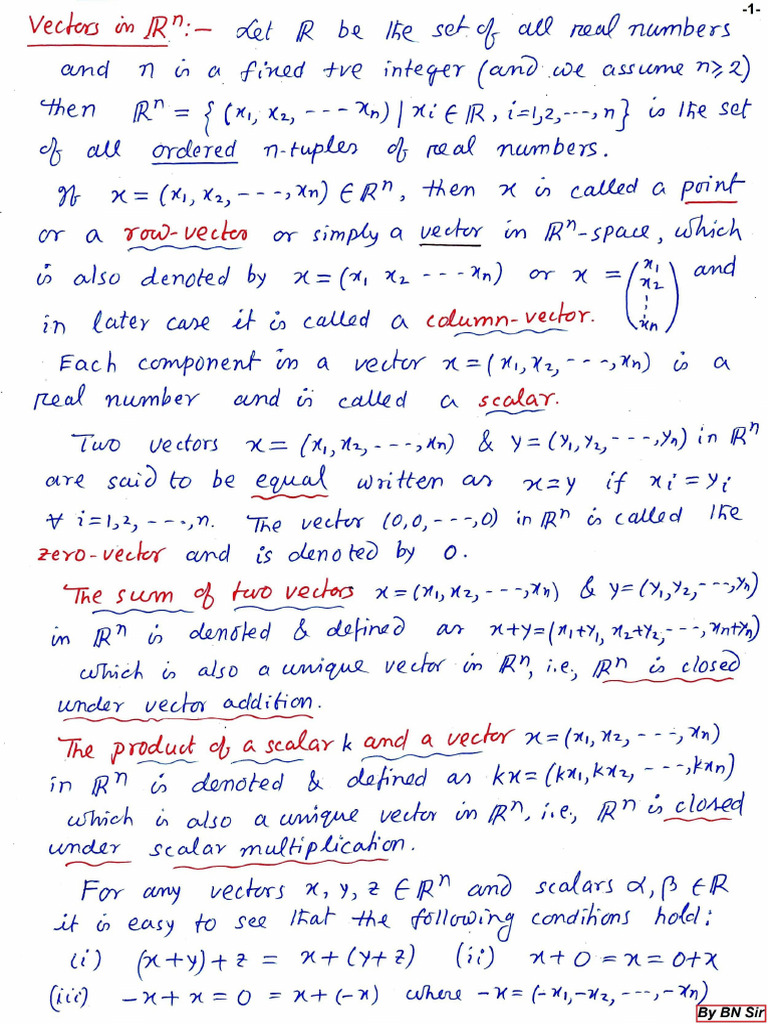 -1-
Vectors in ℝⁿ:- Let ℝ be the set of all real numbers
and n is a fixed +ve integer (and we assume n≥2)
then ℝⁿ = {(x₁, x₂, --- xₙ) | xᵢ ∈ ℝ, i=1,2,---,n} is the set
of all ordered n-tuples of real numbers.
If x = (x₁, x₂, ---, xₙ) ∈ ℝⁿ, then x is called a point
or a row-vector or simply a vector in ℝⁿ-space, which
is also denoted by x = (x₁ x₂ --- xₙ) or x = (x₁ x₂ ⋮ xₙ) and
in later case it is called a column-vector.
Each component in a vector x = (x₁, x₂, ---, xₙ) is a
real number and is called a scalar.
Two vectors x = (x₁, x₂, ---, xₙ) & y = (y₁, y₂, ---, yₙ) in ℝⁿ
are said to be equal written as x = y if xᵢ = yᵢ
∀ i=1,2, ---, n. The vector (0,0, ---, 0) in ℝⁿ is called the
zero-vector and is denoted by 0.
The sum of two vectors x = (x₁, x₂, ---, xₙ) & y = (y₁, y₂, ---, yₙ)
in ℝⁿ is denoted & defined as x+y = (x₁+y₁, x₂+y₂, ---, xₙ+yₙ)
which is also a unique vector in ℝⁿ, i.e., ℝⁿ is closed
under vector addition.
The product of a scalar k and a vector x = (x₁, x₂, ---, xₙ)
in ℝⁿ is denoted & defined as kx = (kx₁, kx₂, ---, kxₙ)
which is also a unique vector in ℝⁿ, i.e., ℝⁿ is closed
under scalar multiplication.
For any vectors x, y, z ∈ ℝⁿ and scalars α, β ∈ ℝ
it is easy to see that the following conditions hold:
(i) (x+y)+z = x+(y+z) (ii) x+0 = x = 0+x
(iii) -x+x = 0 = x+(-x) where -x = (-x₁, -x₂, ---, -xₙ)
By BN Sir